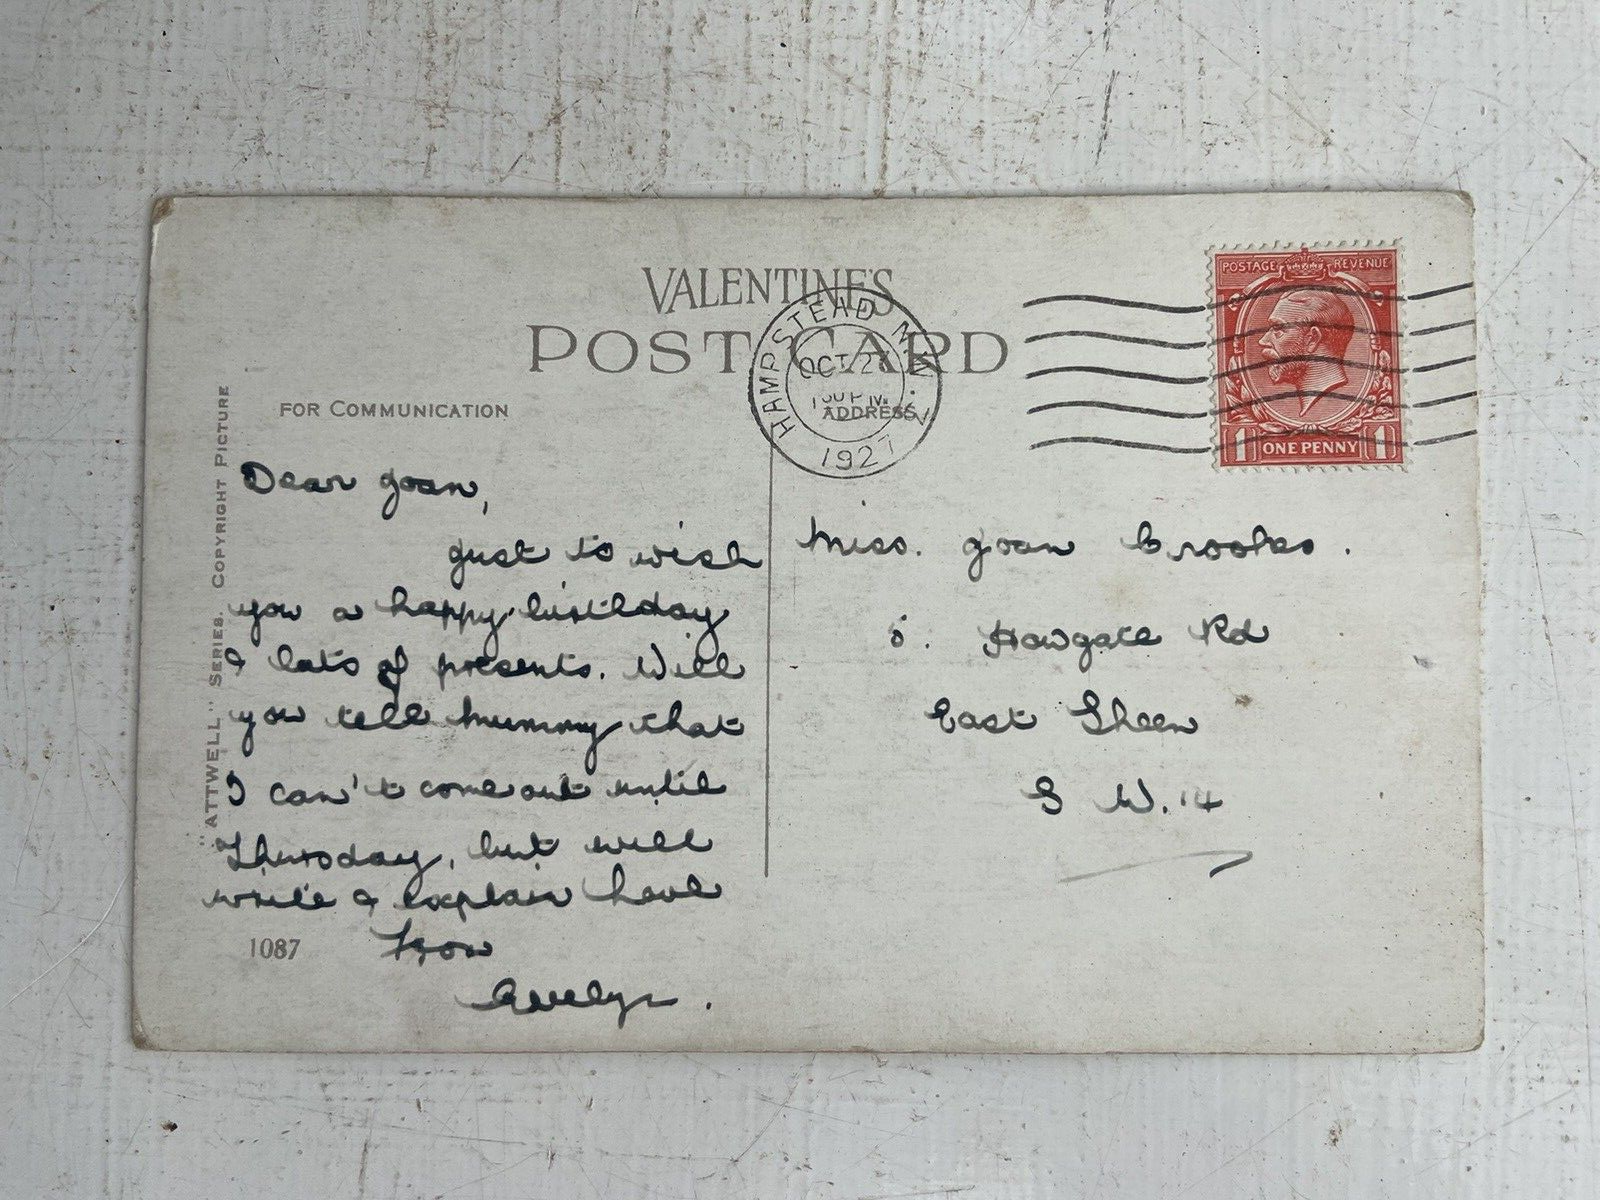 VALENTINE'S
POST CARD
FOR COMMUNICATION
ADDRESS
"ATTWELL" SERIES. COPYRIGHT PICTURE
HAMPSTEAD N.W.
OCT 2
PM
1927
POSTAGE REVENUE
1 ONE PENNY 1
Dear Joan,
Just to wish
you a happy birthday
& lots of presents. Will
you tell Mummy that
I can't come out until
Thursday, but will
write & explain have
from
Evelyn.
1087
Miss. Joan Brookes.
5. Howgate Rd
East Sheen
S W. 14